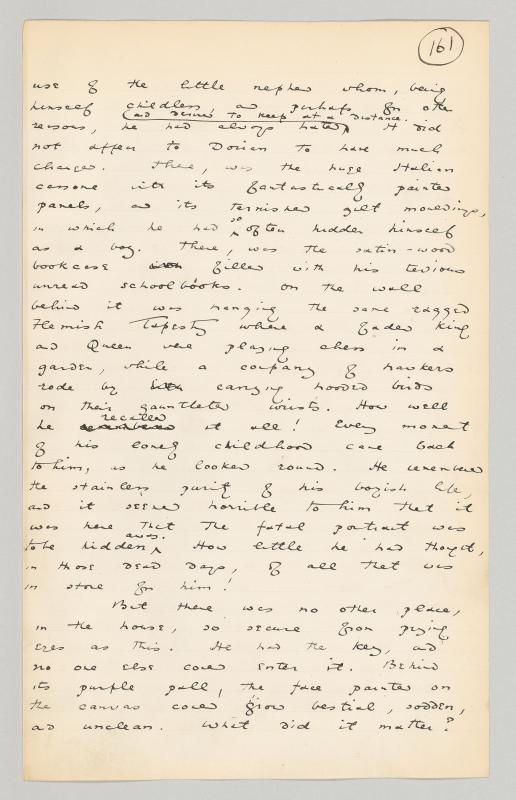 161
use of the little nephew whom, being
himself childless, and perhaps for other
and desired to keep at a distance.
reasons, he had always hated. It did
not appear to Dorian to have much
changed. There, was the huge Italian
cassone with its fantastically painted
panels, and its tarnished gilt mouldings,
in which he had so often hidden himself
as a boy. There, was the satin-wood
bookcase filled with his tedious
unread schoolbooks. On the wall
behind it was hanging the same ragged
Flemish Tapestry where a faded King
and Queen were playing chess in a
garden, while a company of hawkers
rode by carrying hooded birds
on their gauntleted wrists. How well
recalled
he remembered it all! Every moment
of his lonely childhood came back
to him, as he looked round. He remembered
the stainless purity of his boyish life,
and it seemed horrible to him that it
was here that the fatal portrait was
away.
to be hidden. How little he had thought,
in those dead days, of all that was
in store for him!
But there was no other place,
in the house, so secure from prying
eyes as this. He had the key, and
no one else could enter it. Behind
its purple pall, the face painted on
the canvas could grow bestial, sodden,
and unclean. What did it matter?